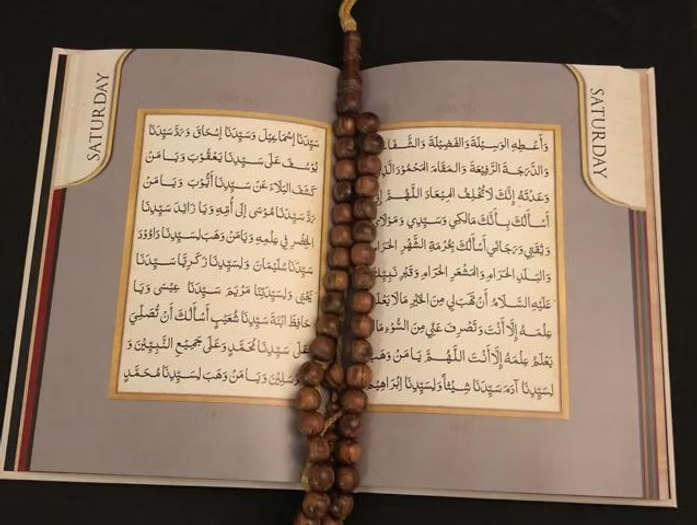 SATURDAY
وَأَعْطِهِ الْوَسِيلَةَ وَالْفَضِيلَةَ
وَالدَّرَجَةَ الرَّفِيعَةَ وَالْمَقَامَ الْمَحْمُودَ
وَعَدْتَهُ إِنَّكَ لَا تُخْلِفُ الْمِيعَادَ اللَّهُمَّ
أَسْأَلُكَ بِأَنَّكَ مَالِكِي وَسَيِّدِي وَمَوْلَايَ
وَثِقَتِي وَرَجَائِي أَسْأَلُكَ بِحُرْمَةِ الشَّهْرِ
وَالْبَلَدِ الْحَرَامِ وَالْمَشْعَرِ الْحَرَامِ وَقَبْرِ نَبِيِّكَ
عَلَيْهِ السَّلَامُ أَنْ تَهَبَ لِي مِنَ الْخَيْرِ مَا لَا
عِلْمَهُ إِلَّا أَنْتَ وَتَصْرِفَ عَنِّي مِنَ السُّوءِ مَا
يَعْلَمُ عِلْمَهُ إِلَّا أَنْتَ اللَّهُمَّ يَا مَنْ وَهَبَ
لِسَيِّدِنَا آدَمَ سَيِّدَنَا شِيثًا وَلِسَيِّدِنَا إِبْرَاهِيمَ
SATURDAY
سَيِّدَنَا إِسْمَاعِيلَ وَسَيِّدَنَا إِسْحَاقَ وَرَدَّ سَيِّدَنَا
يُوسُفَ عَلَى سَيِّدِنَا يَعْقُوبَ وَيَا مَنْ
كَشَفَ الْبَلَاءَ عَنْ سَيِّدِنَا أَيُّوبَ وَيَا مَنْ
رَدَّ سَيِّدَنَا مُوسَى إِلَى أُمِّهِ وَيَا زَائِدَ سَيِّدِنَا
الْخِضْرِ فِي عِلْمِهِ وَيَا مَنْ وَهَبَ لِسَيِّدِنَا دَاوُودَ
سَيِّدَنَا سُلَيْمَانَ وَلِسَيِّدِنَا زَكَرِيَّا سَيِّدَنَا
يَحْيَى وَلِسَيِّدَتِنَا مَرْيَمَ سَيِّدَنَا عِيسَى وَيَا
حَافِظَ ابْنَةِ سَيِّدِنَا شُعَيْبٍ أَسْأَلُكَ أَنْ تُصَلِّيَ
عَلَى سَيِّدِنَا مُحَمَّدٍ وَعَلَى جَمِيعِ النَّبِيِّينَ وَ
يَا مَنْ وَهَبَ لِسَيِّدِنَا مُحَمَّدٍ